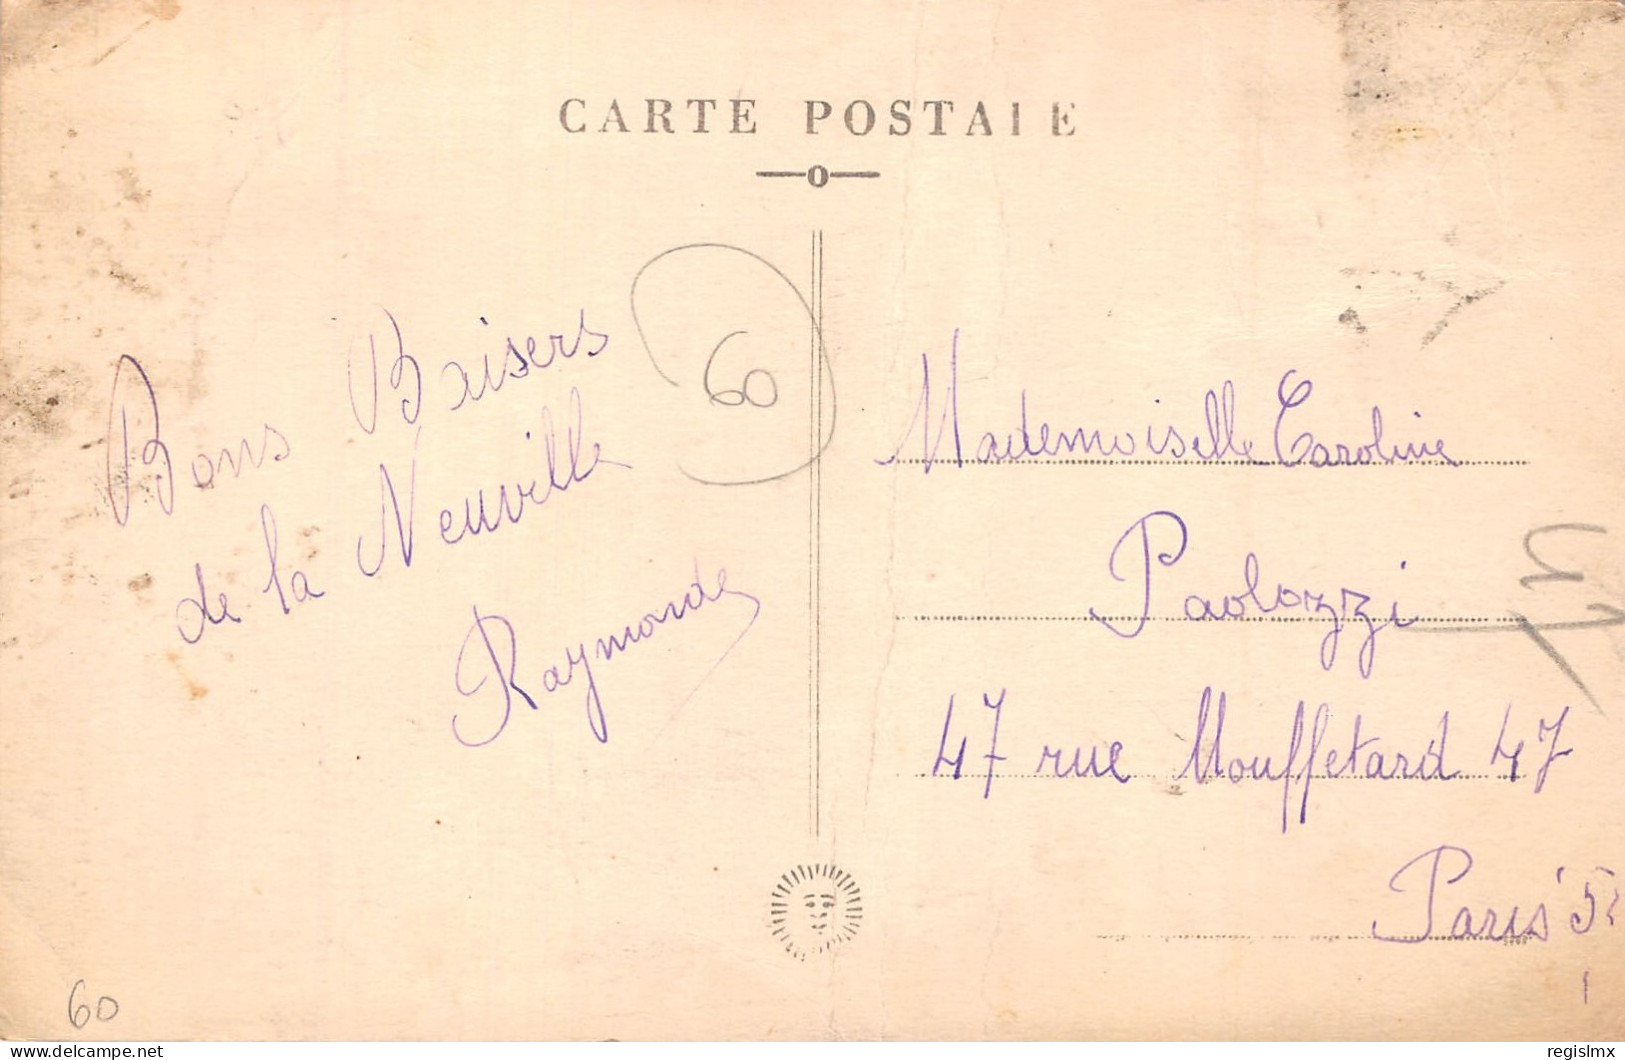 CARTE POSTALE
O
Bons Baisers
de la Neuville
Raymonde
60
Mademoiselle Caroline
Paolozzi
47 rue Mouffetard 47
Paris 5e
60
delcampe.net
regislmx